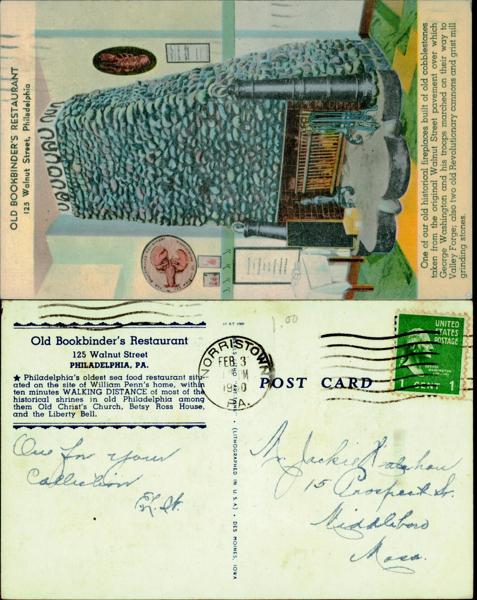 OLD BOOKBINDER'S RESTAURANT
125 Walnut Street, Philadelphia
One of our old historical fireplaces built of old cobblestones
taken from the original Walnut Street pavement over which
George Washington and his troops marched on their way to
Valley Forge; also two old Revolutionary cannons and grist mill
grinding stones.
Old Bookbinder's Restaurant
125 Walnut Street
PHILADELPHIA, PA.
★ Philadelphia's oldest sea food restaurant situ-
ated on the site of William Penn's home, within
ten minutes WALKING DISTANCE of most of the
historical shrines in old Philadelphia among
them Old Christ's Church, Betsy Ross House,
and the Liberty Bell.
One for your
Collection
(LITHOGRAPHED IN U.S.A.) - DES MOINES, IOWA
1.00
NORRISTOWN
FEB 3
PA.
POST CARD
UNITED
STATES
POSTAGE
1 CENT 1
Mr. Jackie
15 Prospect St.
Middleboro
Mass.